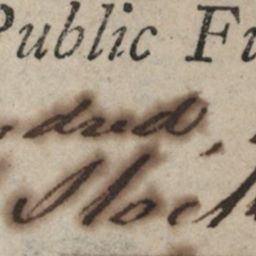 Public Fu
ndred,
Stock